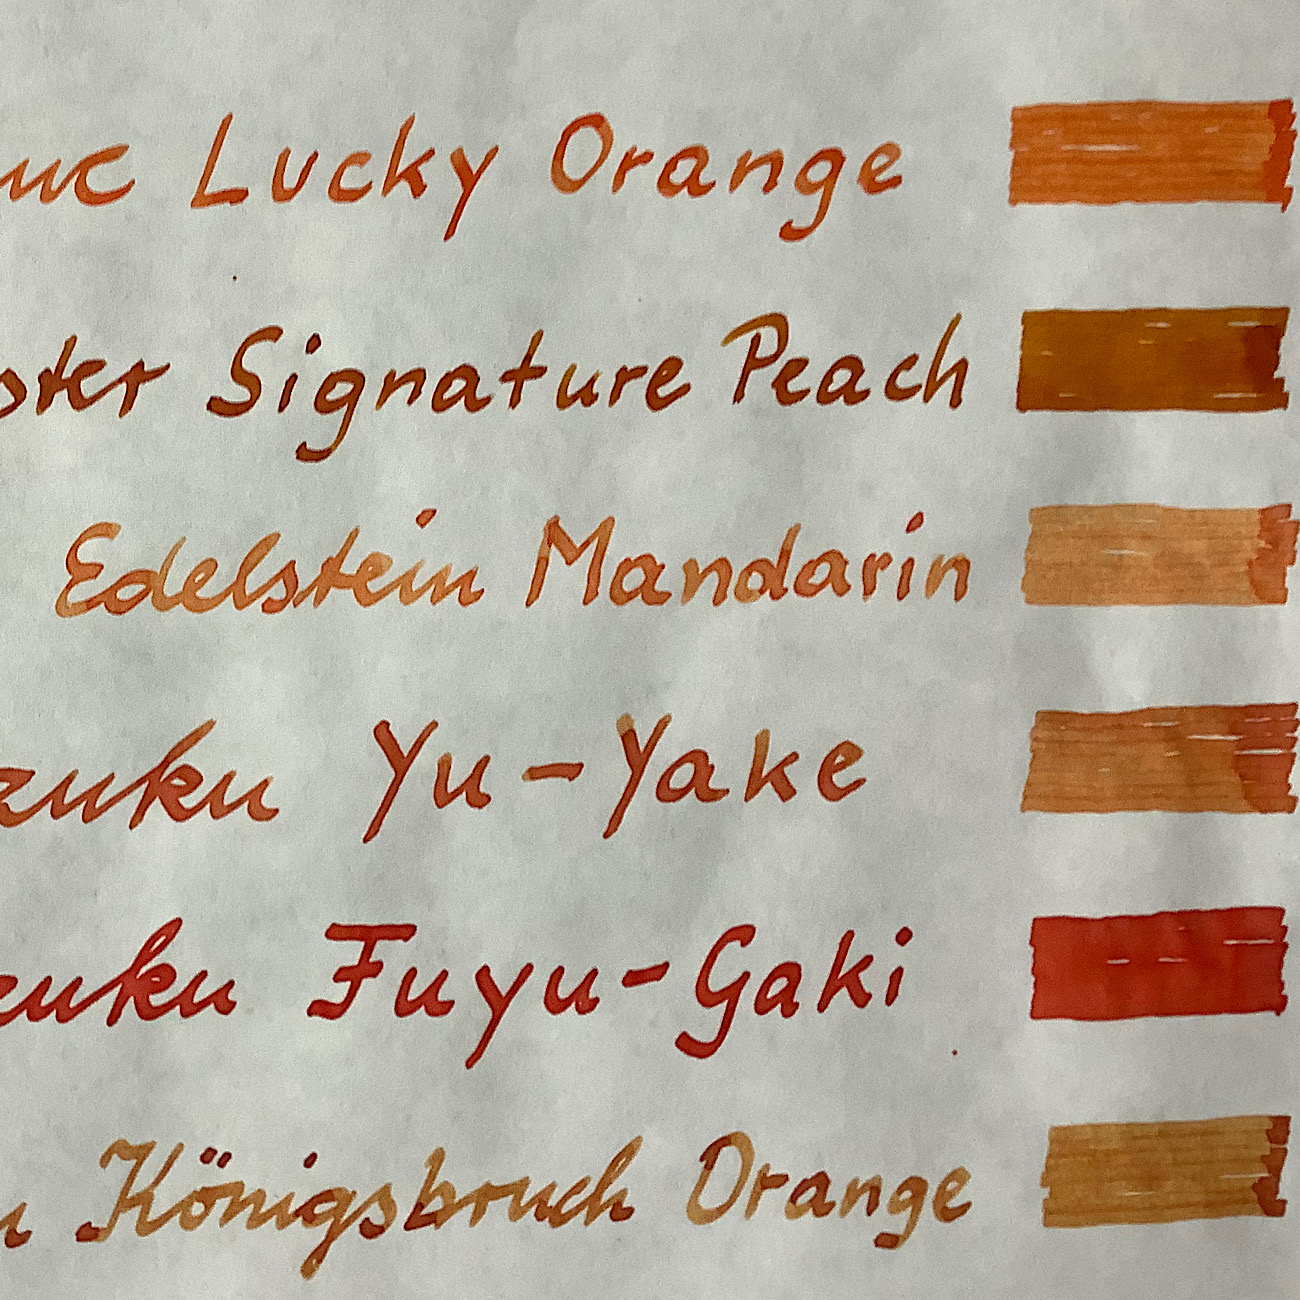 Lucky Orange
Signature Peach
Edelstein Mandarin
Yu-Yake
Fuyu-Gaki
Königsbruch Orange